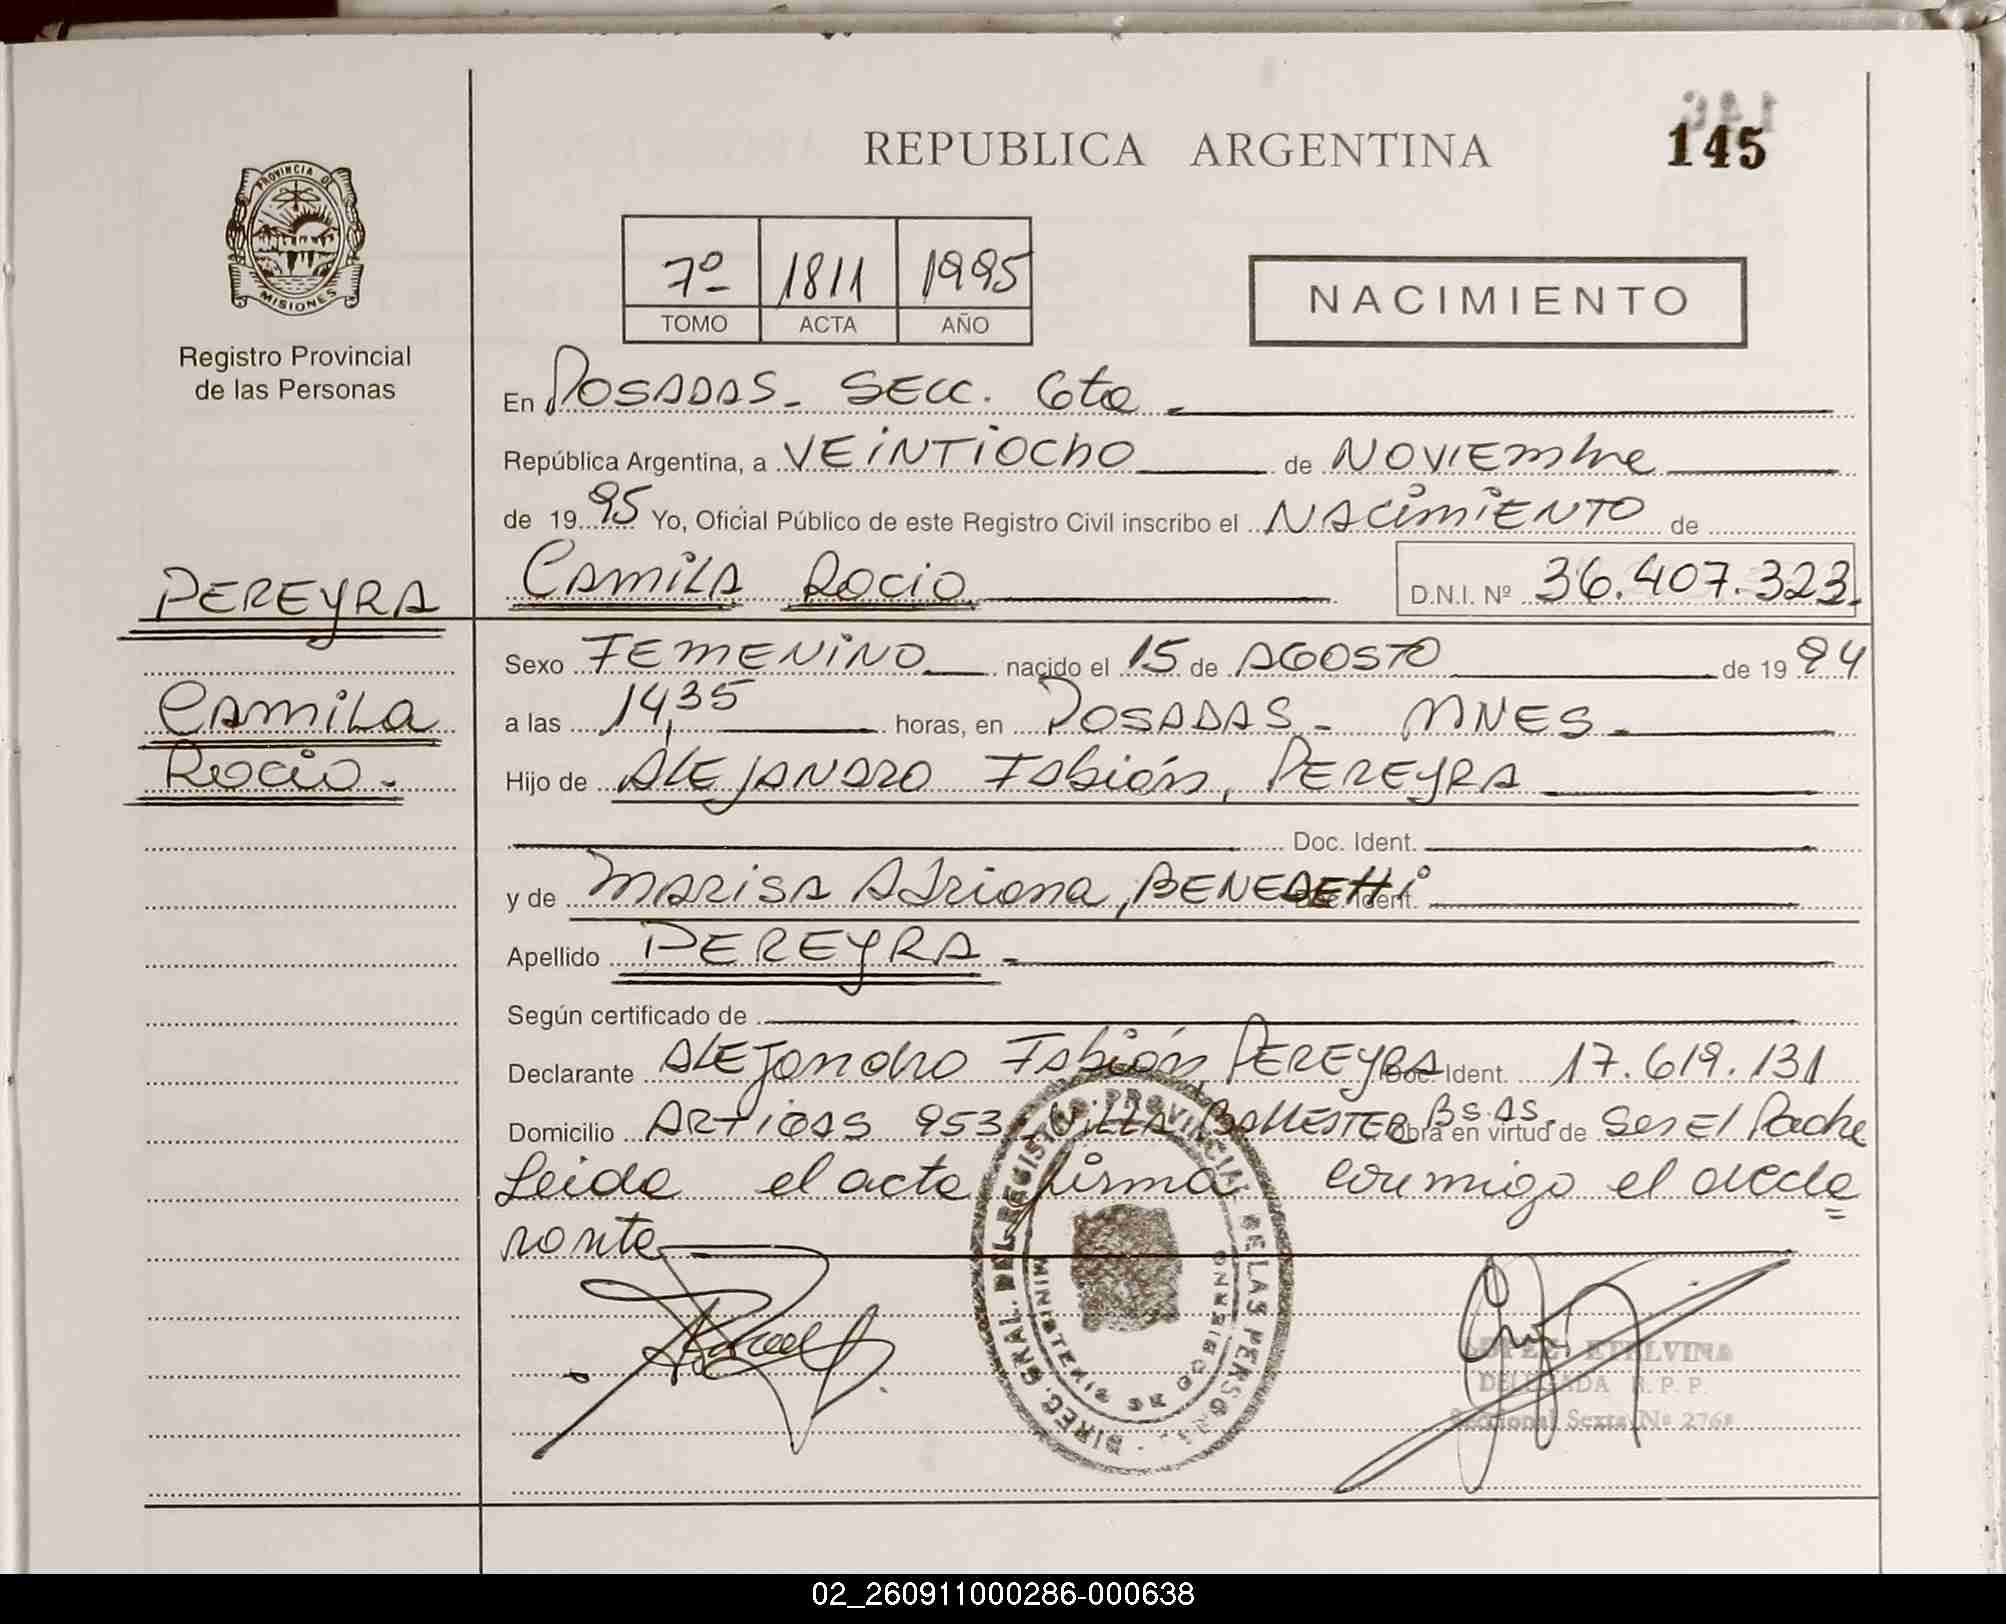 REPUBLICA ARGENTINA
145
PROVINCIA DE
MISIONES
Registro Provincial
de las Personas
7º 1811 1995
TOMO ACTA AÑO
NACIMIENTO
En POSADAS - SECC. 6ta -
República Argentina, a VEINTIOCHO de NOVIEMbre
de 19 95 Yo, Oficial Público de este Registro Civil inscribo el NACIMIENTO de
PEREYRA
CAMILA ROCIO D.N.I. Nº 36.407.323.
Sexo FEMENINO nacido el 15 de AGOSTO de 19 94
CAMILA
a las 14,35 horas, en POSADAS - MNES -
ROCIO -
Hijo de ALEJANDRO Fabián, PEREYRA
Doc. Ident.
y de MARISA Adriana, BENEDETTI Doc. Ident.
Apellido PEREYRA -
Según certificado de
Declarante ALEJANDRO Fabián, PEREYRA Doc. Ident. 17.619.131
Domicilio ARTIGAS 953 - VILLA BALLESTER BS.AS. Obra en virtud de Ser El Padre
Leida el acta firma conmigo el decla
rante
DIREC. GRAL. DEL REGISTRO PROVINCIAL DE LAS PERSONAS
MINISTERIO DE GOBIERNO
LOPEZ ETELVINA
DELEGADA R. P. P.
Seccional Sexta Nº 2768
02_260911000286-000638